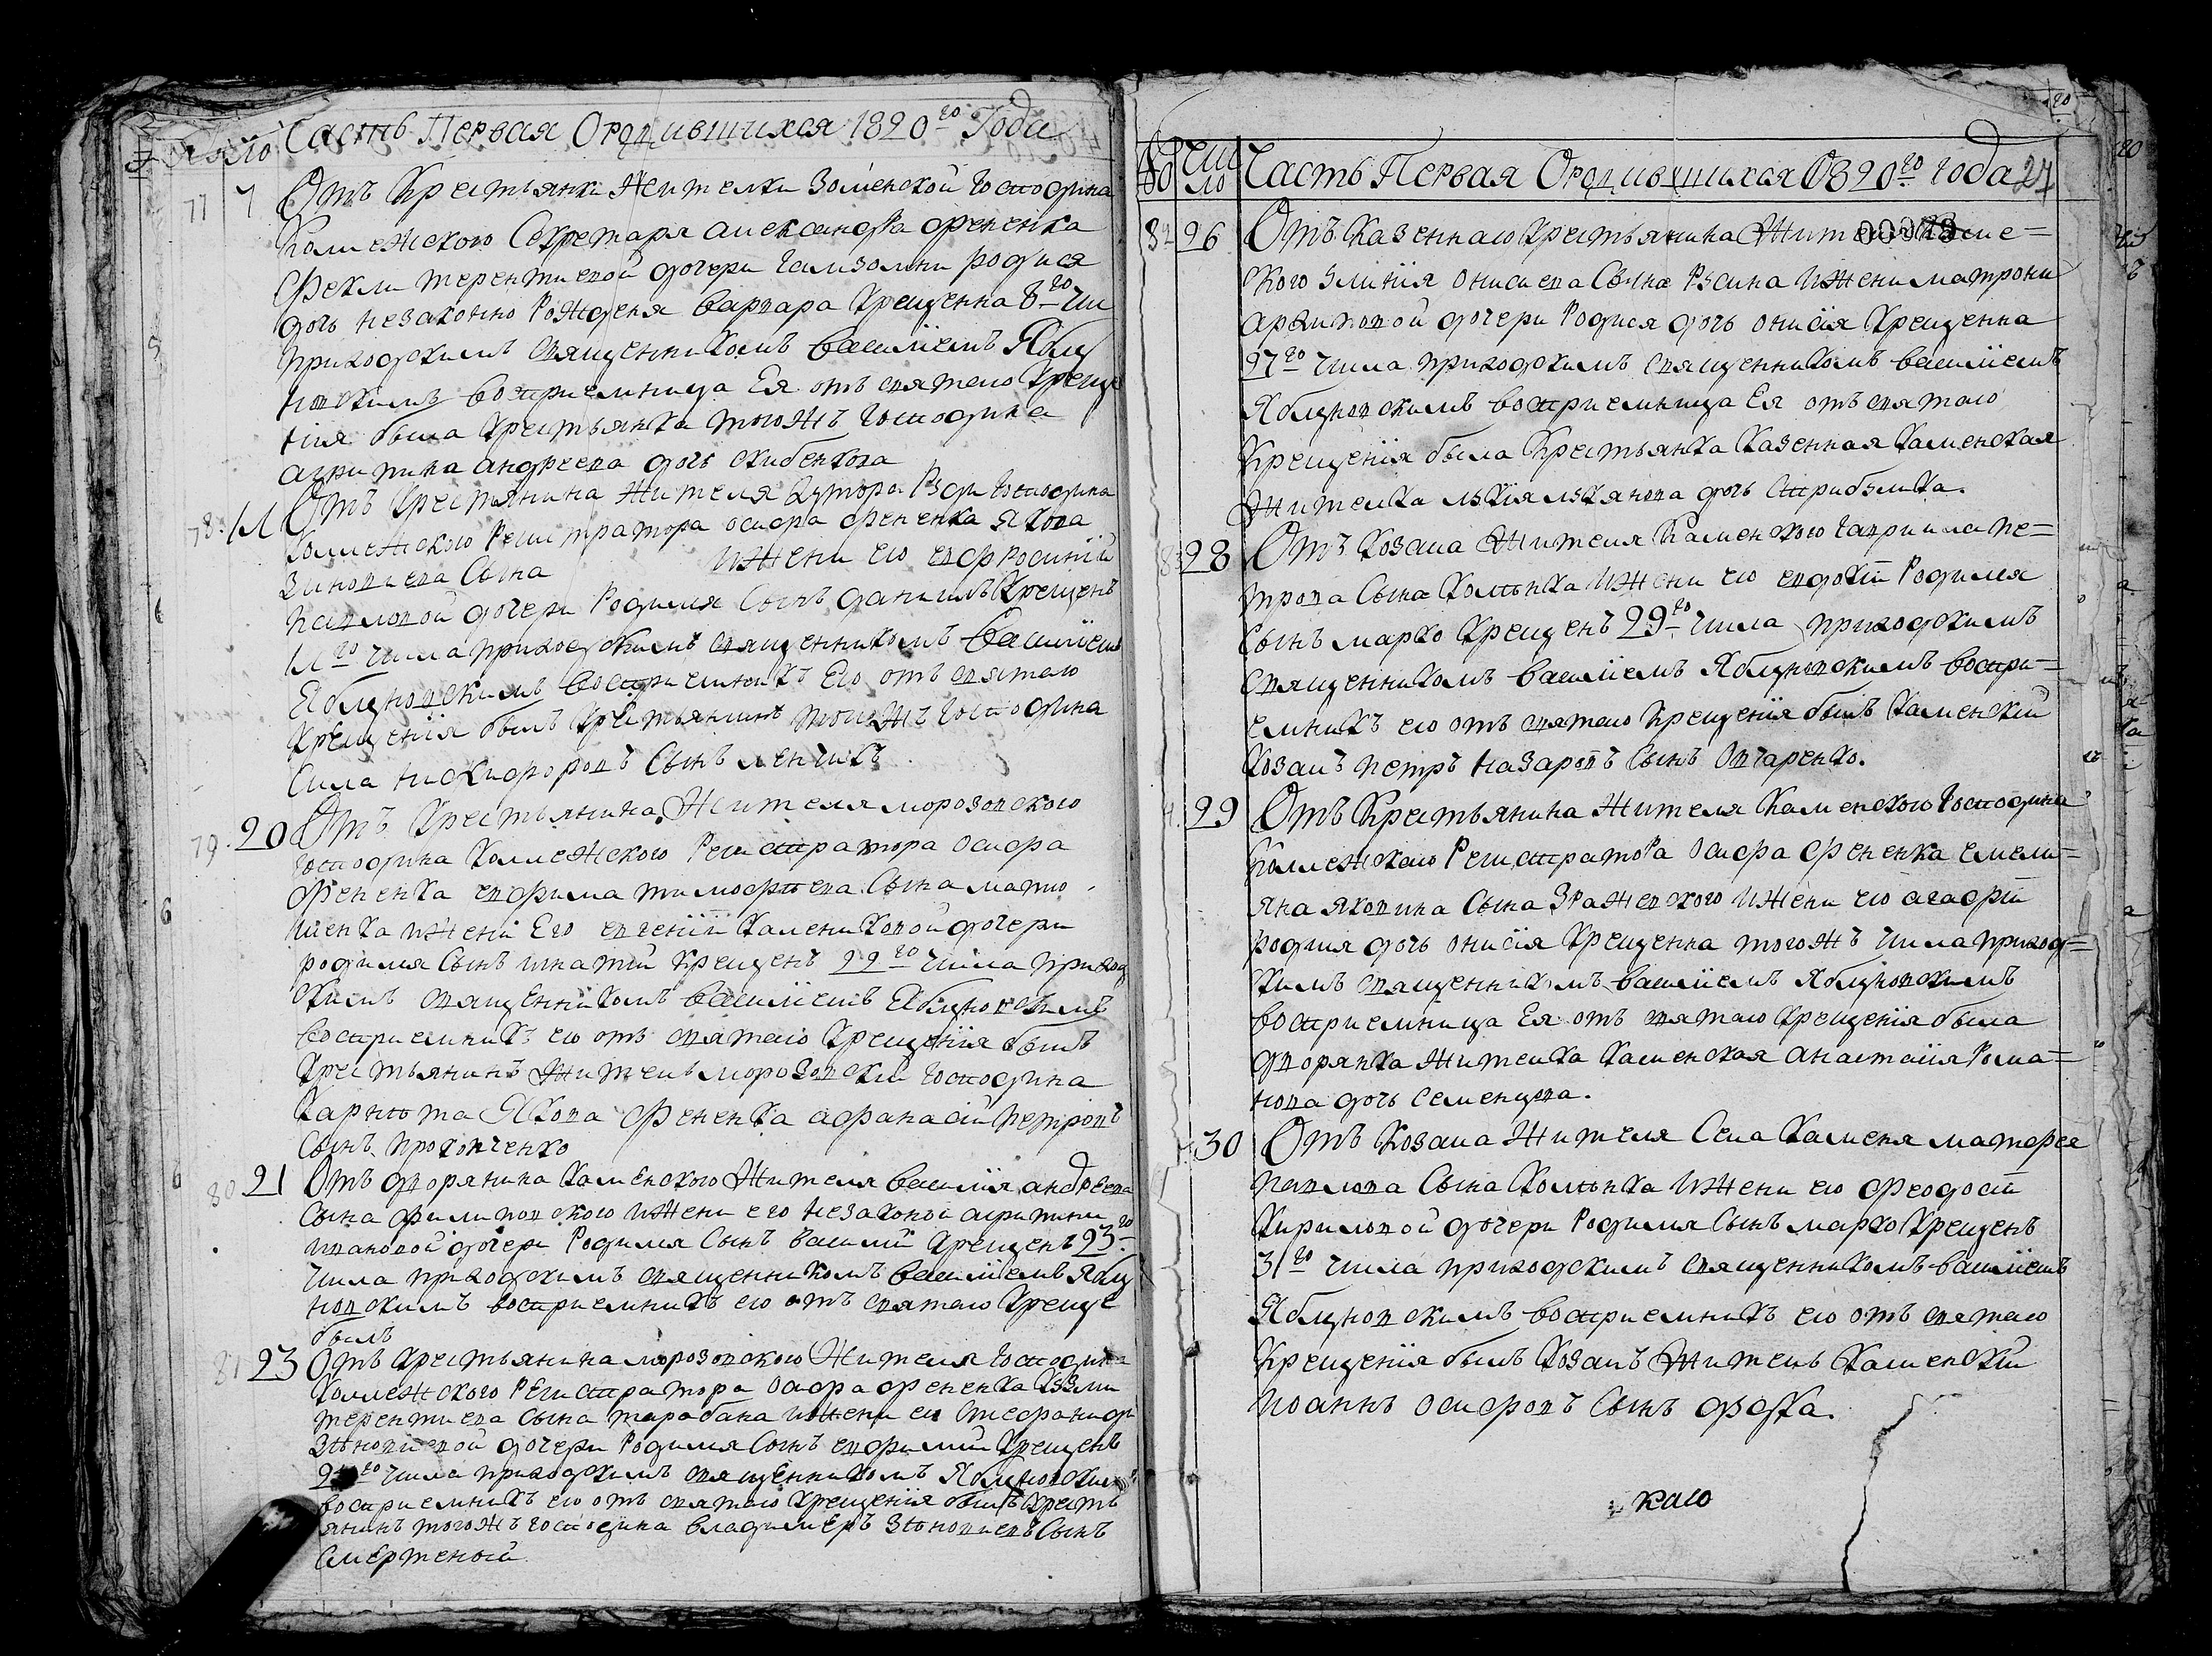 Часть Первая Ородившихся 1820го Года
77 7 Отъ Крестьянки Жителки господина
Колежского Секретаря александра фененка
Феклы терентиевой дочери родися
дочь незаконно рожденя варвара Крещенна 8го чи
приходскимъ священникомъ василіемъ Яблу
новскимъ восприемница Ея отъ святаго Креще
нія была Крестьянка тогожъ господина
агрипина андреева дочь скибенкова
78 Отъ Крестянина Жителя хутора господина
Колежского Регистратора осифа фененка якова
Зиновиева Сына иЖени его евфросиніи
павловой дочери Родился Сынъ даниилъ Крещенъ
числа приходскимъ священникомъ василіемъ
Яблуновскимъ восприемникъ Его отъ святаго
Крещенія былъ Крестьянинъ тогожъ господина
Сила никифоровъ Сынъ
79. 20 Отъ Крестьянина Жителя морозовского
господина Колежского Регистратора осифа
Фененка евфима тимофеева Сына матю
шенка иЖени Его евгеніи дочери
родился Сынъ игнатій Крещенъ 22го числа приход
скимъ священникомъ василіемъ Яблуновскимъ
восприемникъ его отъ святаго Крещенія былъ
Крестьянинъ Житель морозовскій господина
Якова Фененка афанасій петровъ
Сынъ прокопченко
80 21 Отъ дворянина Каменского Жителя василія андреева
Сына филиповского иЖени его незаконой агрипини
ивановой дочери Родился Сынъ василій Крещенъ 23го
числа приходскимъ священникомъ василіемъ яблу
новскимъ восприемникъ его отъ святаго Креще
былъ
81 23 Отъ Крестьянина морозовского Жителя господина
Колежского Регистратора осифа фененка Кузми
терентиева Сына тарабана иЖени его Стефаниди
Зѣновиевой дочери Родился Сынъ евфимій Крещенъ
числа приходскимъ священникомъ Яблуновским
восприемникъ его отъ святаго Крещенія былъ Кресть
янинъ тогожъ господина владимеръ Зѣновиевъ Сынъ
Смертеной
число Часть Первая Ородившихся 1820го года 27
82 26 Отъ Казеннаго Крестьянина
ского онисиева Сына иЖени матрони
архиповой дочери Родися дочь онисія Крещенна
27го числа приходскимъ священникомъ василіемъ
Яблуновскимъ восприемница Ея отъ святаго
Крещенія была Крестьянка Казенная Каменская
Жителка дочь
83 28 Отъ Козака Жителя Каменского гавриила пе=
трова Сына иЖени его евдокіи Родился
Сынъ марко Крещенъ 29го числа приходскимъ
священникомъ василіемъ Яблуновскимъ воспри=
емникъ его отъ святаго Крещенія былъ Каменскій
Козакъ петръ назаровъ Сынъ Овчаренко.
29 Отъ Крестьянина Жителя Каменского господина
Колежского Регистратора осифа фененка емели=
яна яковина Сына Зражевского иЖени его агафіи
родися дочь онисія Крещенна тогожъ числа приход=
скимъ священникомъ василіемъ Яблуновскимъ
восприемница Ея отъ святаго Крещенія была
дворянка Жителка Каменская анастасія Рома=
нова дочь Семенцева.
30 Отъ Козака Жителя Села Каменя матфея
павлова Сына иЖени его феодосіи
Кириловой дочери Родился Сынъ марко Крещенъ
31го числа приходскимъ священникомъ василіемъ
Яблуновскимъ восприемникъ его отъ святаго
Крещенія былъ Козакъ Житель Каменскій
иоаннъ осифовъ Сынъ
каго